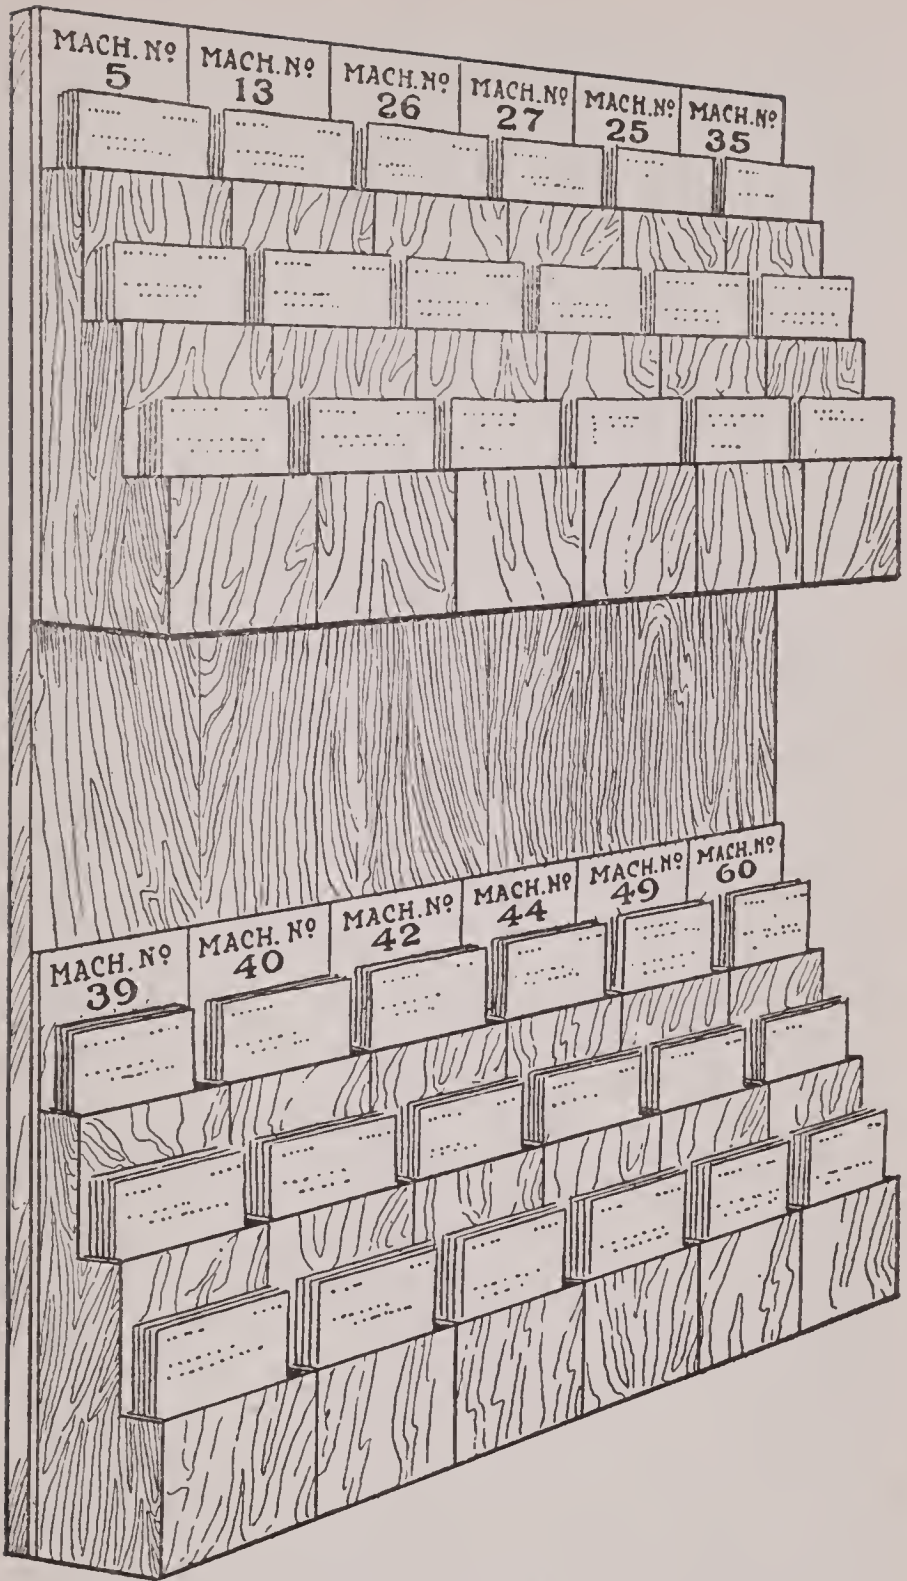 MACH. Nº
5
MACH. Nº
13
MACH. Nº
26
MACH. Nº
27
MACH. Nº
25
MACH. Nº
35
MACH. Nº
39
MACH. Nº
40
MACH. Nº
42
MACH. Nº
44
MACH. Nº
49
MACH. Nº
60